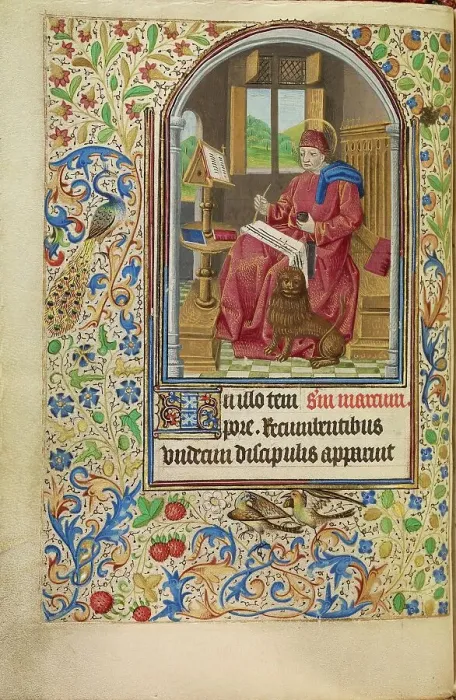 In illo tem Sm marcum.
pore. Recumbentibus
undecim discipulis apparuit